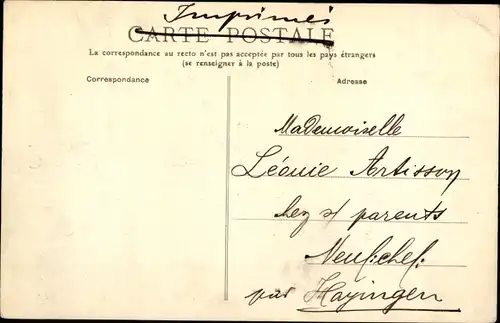 Imprimés
CARTE POSTALE
La correspondance au recto n'est pas acceptée par tous les pays étrangers
(se renseigner à la poste)
Correspondance
Adresse
Mademoiselle
Léonie Artisson
chez s/ parents
Neufchef
par Hayingen